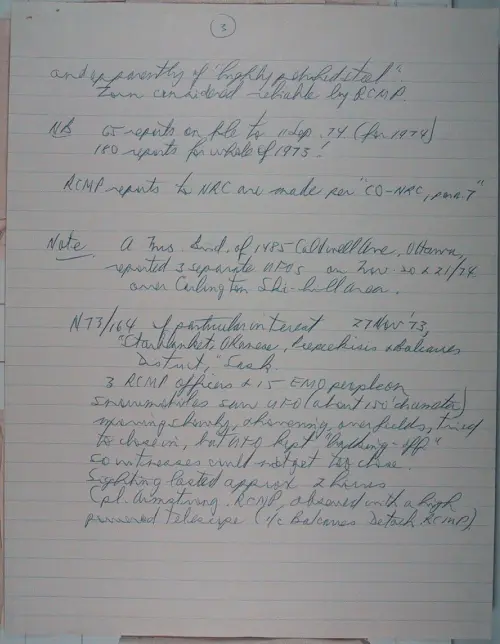 3
and apparently of "highly polished steel".
Zorn considered reliable by RCMP
NB 65 reports on file to 11 Sep. 74 (for 1974)
180 reports for whole of 1973!
RCMP reports to NRC are made per "CO-NRC, para. 7"
Note A Mrs. of 1485 Caldwell Ave, Ottawa,
reported 3 separate UFOs on 20 & 21/74
over Carlington Ski-hill area.
N73/164 of particular interest 27 Nov '73,
"Star Blanket, Okanese, Peepeekisis & Balcarres
District," Sask.
3 RCMP officers & 15 EMO people on
snowmobiles saw UFO (about 150' diameter)
moving slowly, & hovering over fields, tried
to close in, but UFO kept "backing-off"
so witnesses could not get too close.
Sighting lasted approx 2 hours
Cpl. Armstrong, RCMP, observed with a high
powered telescope (i/c Balcarres Detach. RCMP).